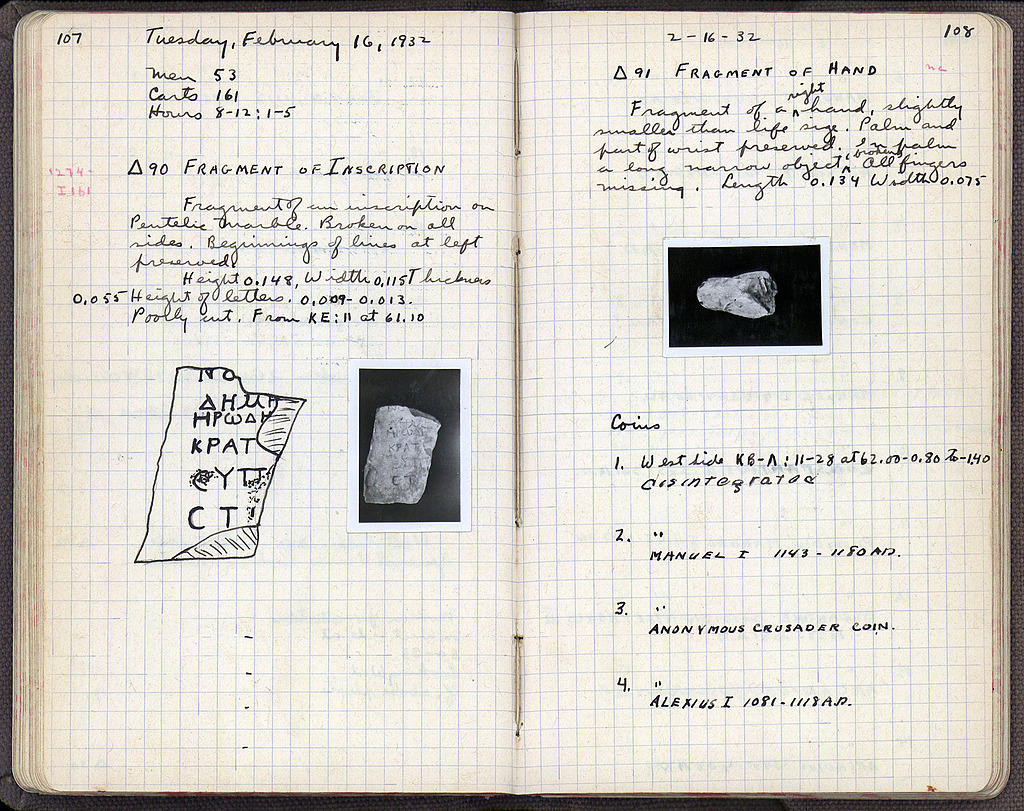 107
Tuesday, February 16, 1932
Men 53
Carts 161
Hours 8-12; 1-5
Δ 90 FRAGMENT OF INSCRIPTION
I 161
Fragment of an inscription on
Pentelic marble. Broken on all
sides. Beginnings of lines at left
preserved.
Height 0.148, Width 0.115 Thickness
0.055 Height of letters. 0.009-0.013.
Poorly cut. From KE:11 at 61.10
ΝΟ
ΔΗΜΗ
ΗΡωΔΗ
ΚΡΑΤ
ϹΥΠ
Ϲ Τ
108
2-16-32
Δ 91 FRAGMENT OF HAND
nc.
Fragment of a right hand, slightly
smaller than life size. Palm and
part of wrist preserved. In palm
a long narrow object, broken. All fingers
missing. Length 0.134 Width 0.075
Coins
1. West side KB-Λ: 11-28 at 62.00-0.80 to -1.40
disintegrated
2. "
MANUEL I 1143-1180 A.D.
3. "
ANONYMOUS CRUSADER COIN.
4. "
ALEXIUS I 1081-1118 A.D.